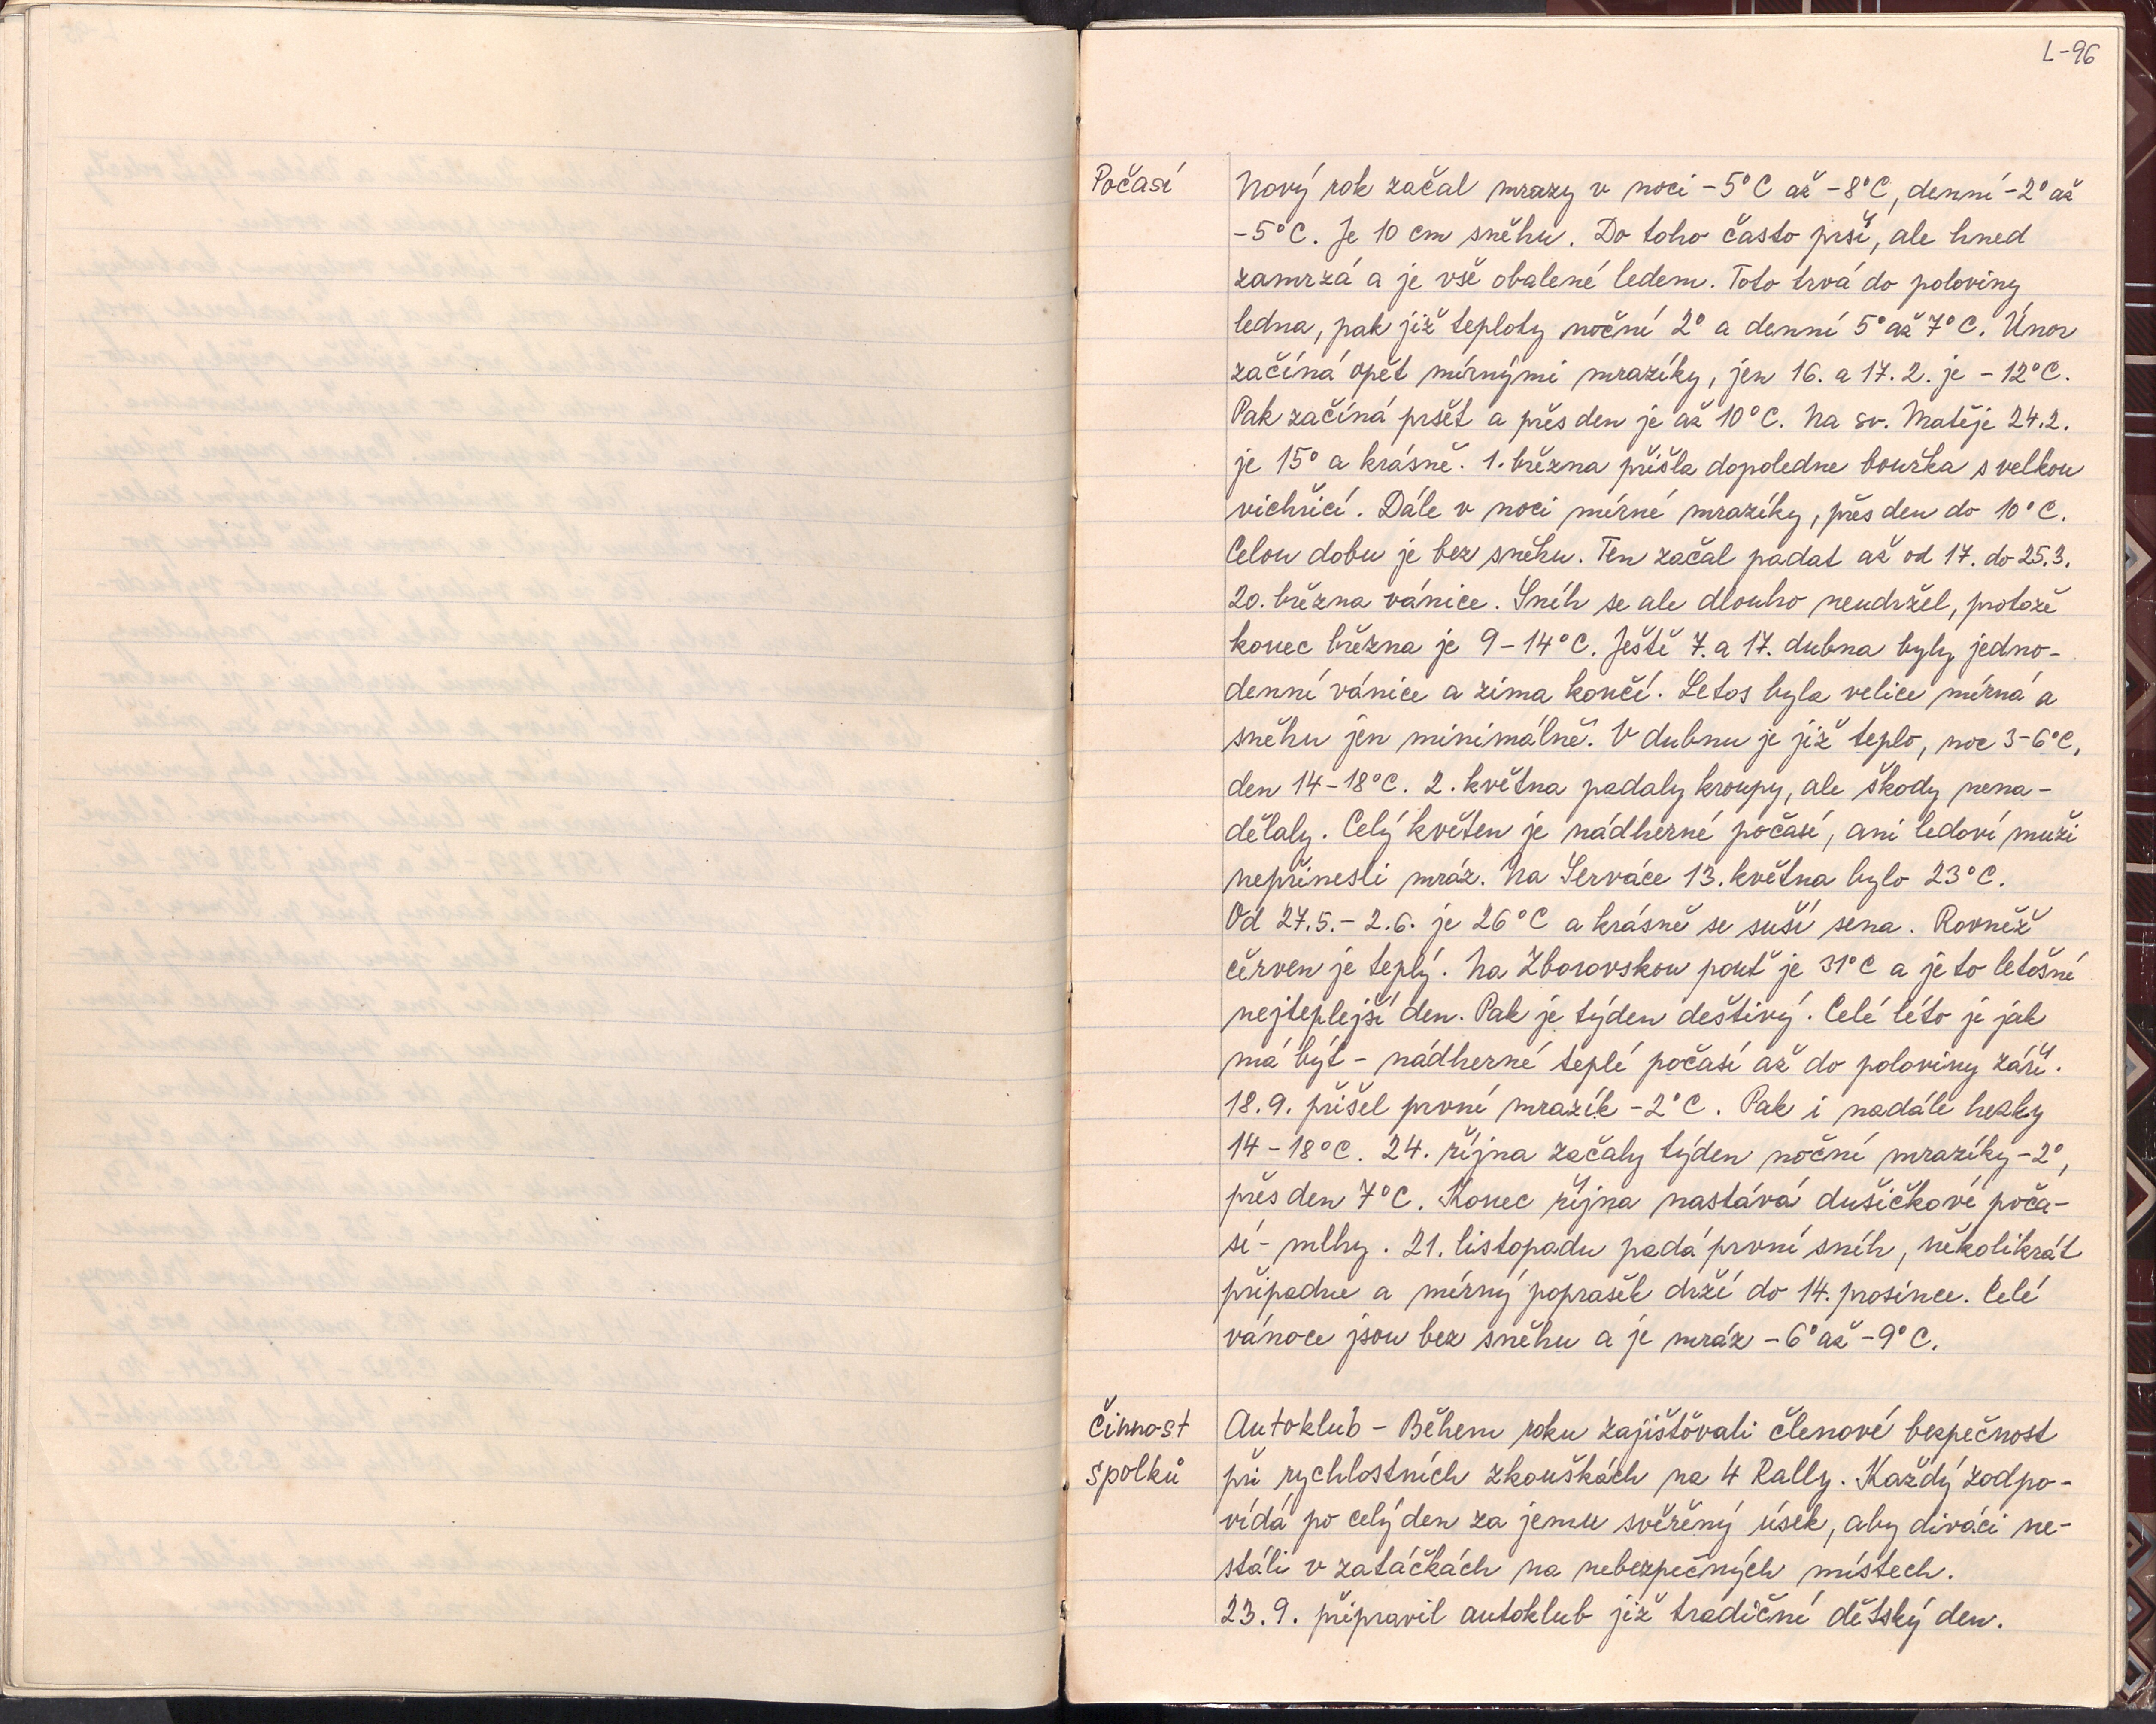 L-96
Počasí
Nový rok začal mrazy v noci -5°C až -8°C, denní -2° až
-5°C. Je 10 cm sněhu. Do toho často prší, ale hned
zamrzá a je vše obalené ledem. Toto trvá do poloviny
ledna, pak již teploty noční 2° a denní 5° až 7°C. Únor
začíná opět mírnými mrazíky, jen 16. a 17. 2. je -12°C.
Pak začíná pršet a přes den je až 10°C. Na sv. Matěje 24.2.
je 15° a krásně. 1. března přišla dopoledne bouřka s velkou
vichřicí. Dále v noci mírné mrazíky, přes den do 10°C.
Celou dobu je bez sněhu. Ten začal padat až od 17. do 25.3.
20. března vánice. Sníh se ale dlouho neudržel, protože
konec března je 9-14°C. Ještě 7. a 17. dubna byly jedno-
denní vánice a zima končí. Letos byla velice mírná a
sněhu jen minimálně. V dubnu je již teplo, noc 3-6°C,
den 14-18°C. 2. května padaly kroupy, ale škody nena-
dělaly. Celý květen je nádherné počasí, ani ledoví muži
nepřinesli mráz. Na Serváce 13. května bylo 23°C.
Od 27.5.-2.6. je 26°C a krásně se suší sena. Rovněž
červen je teplý. Na Zborovskou pouť je 31°C a je to letošní
nejteplejší den. Pak je týden deštivý. Celé léto je jak
má být - nádherné teplé počasí až do poloviny září.
18.9. přišel první mrazík -2°C. Pak i nadále hezky
14-18°C. 24. října začaly týden noční mrazíky -2°,
přes den 7°C. Konec října nastává dušičkové počа-
sí - mlhy. 21. listopadu padá první sníh, několikrát
připadne a mírný poprašek drží do 14. prosince. Celé
vánoce jsou bez sněhu a je mráz -6° až -9°C.
Činnost
spolků
Autoklub - Během roku zajišťovali členové bezpečnost
při rychlostních zkouškách na 4 Rally. Každý zodpo-
vídá po celý den za jemu svěřený úsek, aby diváci ne-
stáli v zatáčkách na nebezpečných místech.
23.9. připravil autoklub již tradiční dětský den.